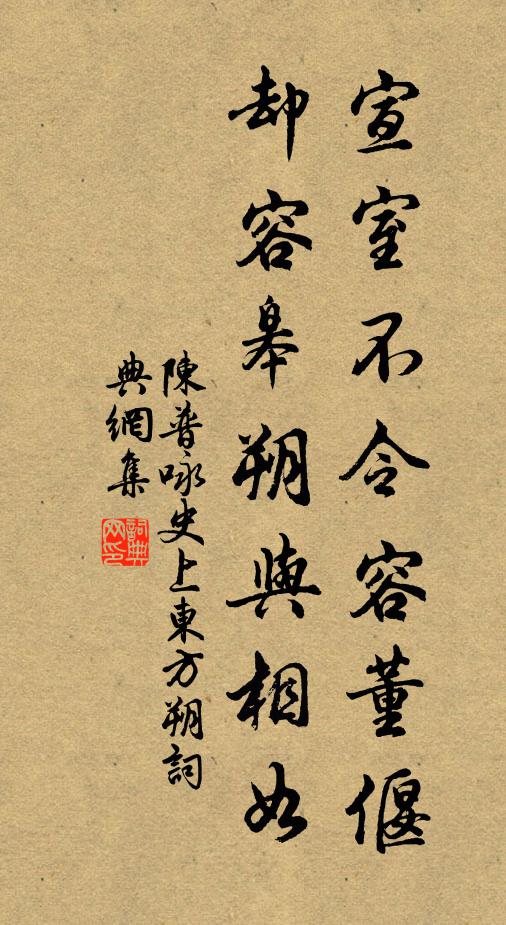 宣室不令容董偃
却容皋朔與相如
陳普咏史上東方朔詞
典網集
詞典网印